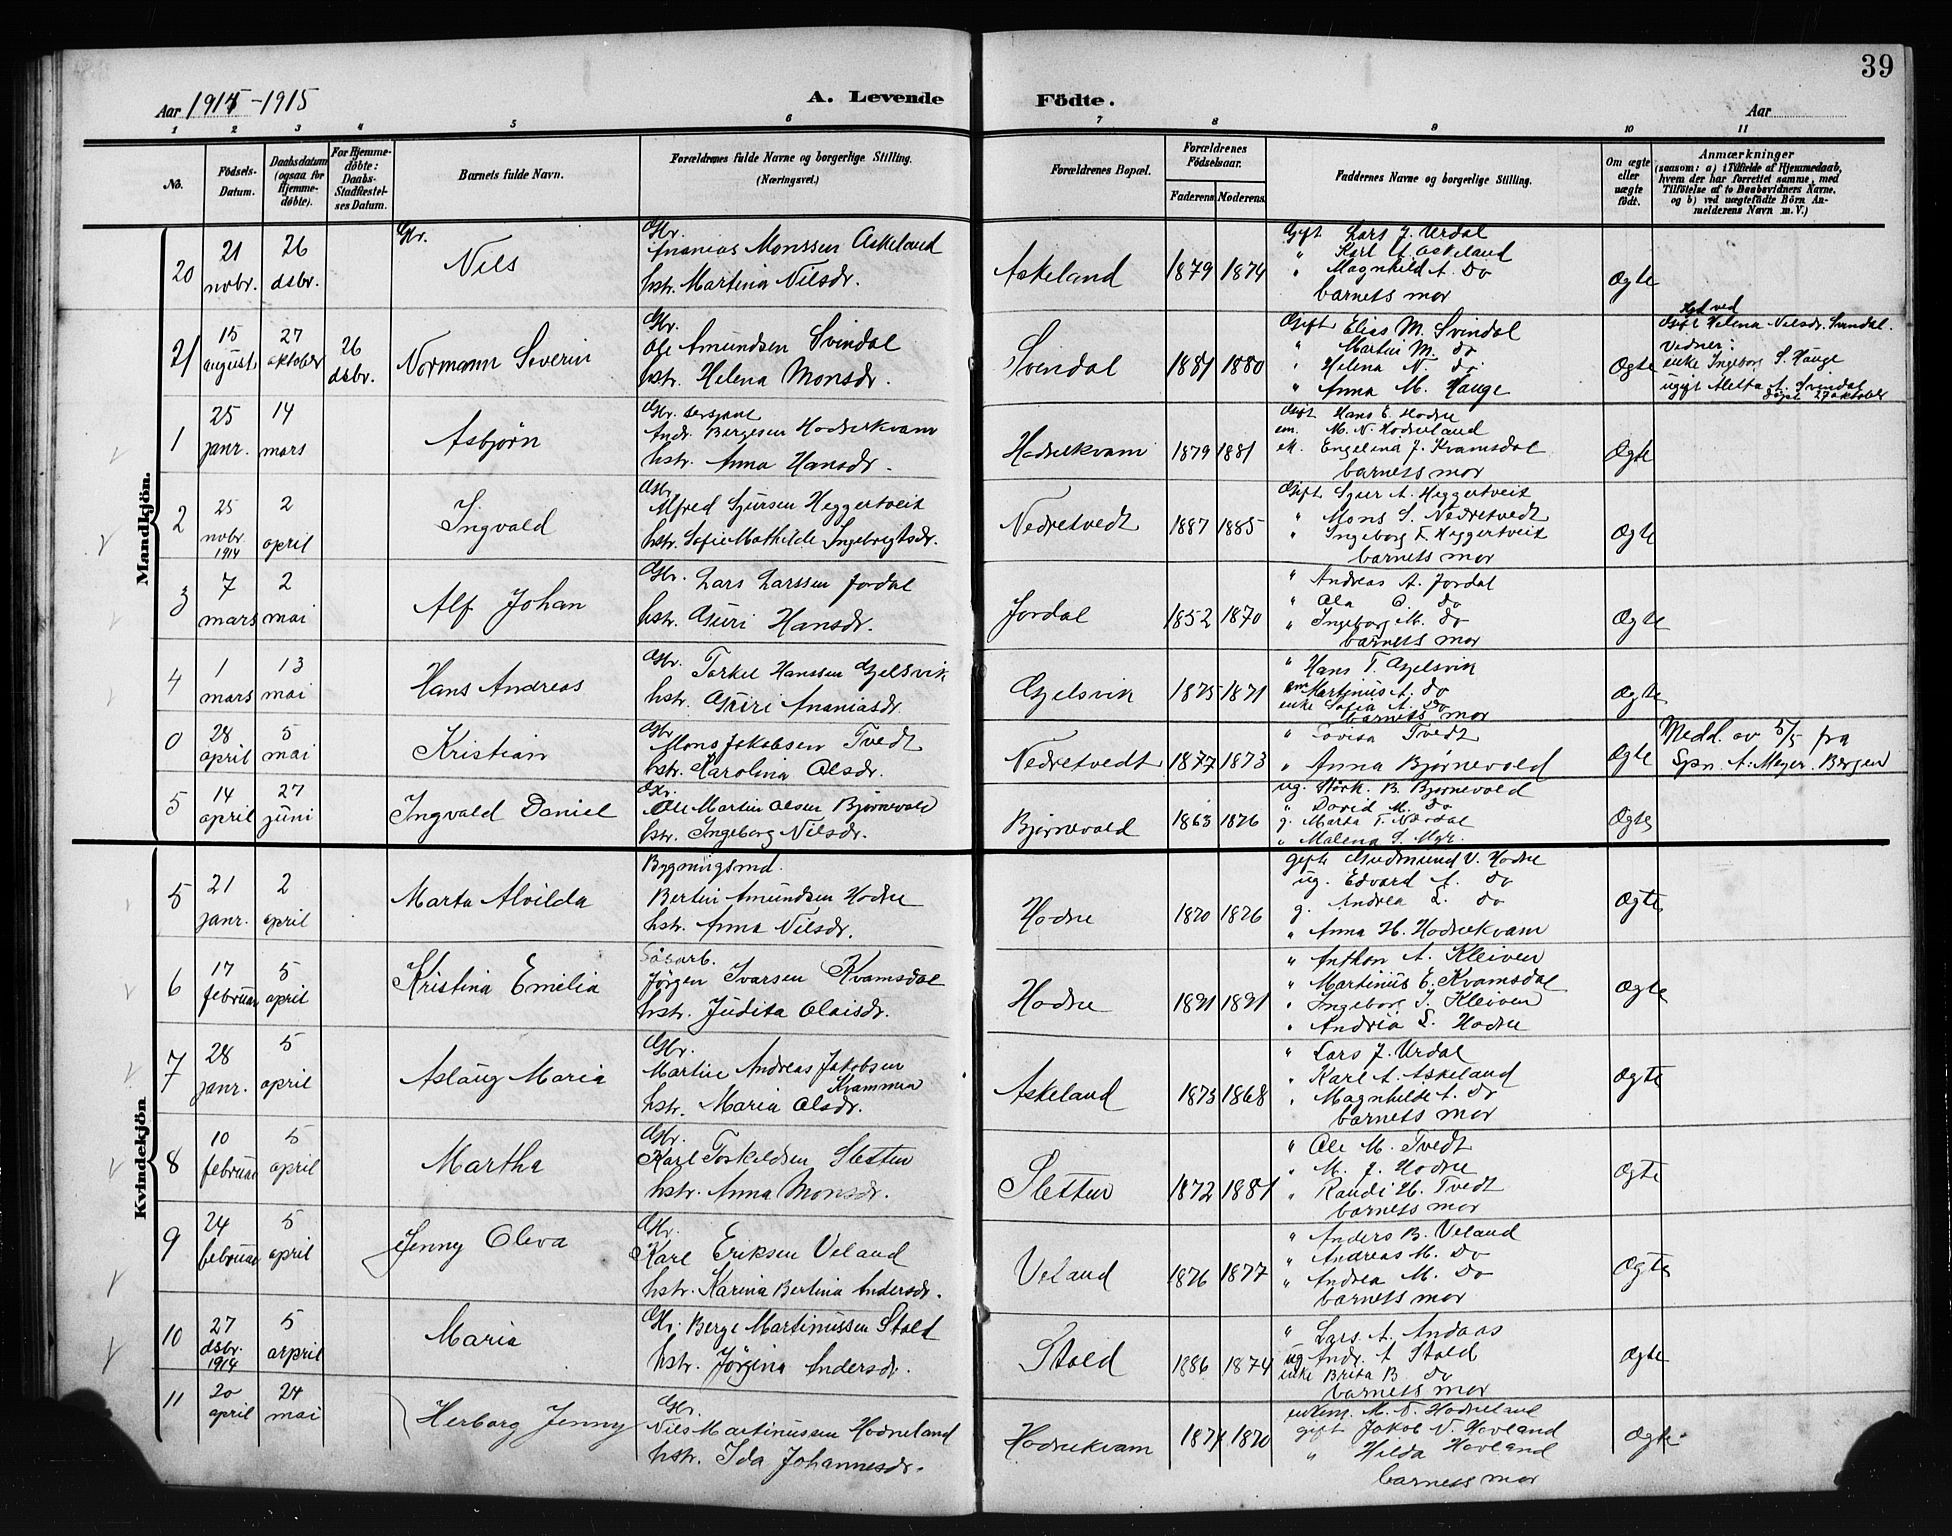 39
Aar 1914-1915
A. Levende Födte.
Aar
1 2 3 4 5 6 7 8 9 10 11
No.
Födsels-Datum.
Daabsdatum (ogsaa for Hjemme-döbte).
For Hjemme-döbte: Daabs-Stadfæstel-ses Datum.
Barnets fulde Navn.
Forældrenes fulde Navne og borgerlige Stilling.
(Næringsvei.)
Forældrenes Bopæl.
Forældrenes Födselsaar.
Faderens Moderens
Faddernes Navne og borgerlige Stilling.
Om ægte eller uægte født.
Anmærkninger
(saasom: a) i Tilfælde af Hjemmedaab,
hvem der har forrettet samme, med
Tilföielse af to Daabsvidners Navne,
og b) ved uægtefødte Börn An-
melderens Navn m. V.)
Mandkjön.
20 21 novbr. 26 dsbr. Nils
Gbr.
Ananias Monssen Askeland
hstr. Martina Nilsdr.
Askeland 1879 1874
Gift Lars J. Urdal
" Karl A. Askeland
" Magnhild A. Do
barnets mor
Ægte
21 15 august 27 oktober 26 dsbr. Normann Severin
Gbr.
Ole Amundsen Svindal
hstr. Helena Monsdr.
Svindal 1881 1880
Gift Elias M. Svindal
" Martin M. do
" Helena N. do
" Anna M. Hauge
Ægte
ved
Gift Helena Nilsdr. Svindal.
Vidner:
enke Ingeborg S. Hauge
ugift Metta A. Svindal
27 oktober
1 25 janr. 14 mars Asbjørn
Gbr. sersjant
Andr. Bergesen Hodnekvam
hstr. Anna Hansdr.
Hodnekvam 1879 1881
Gift Hans E. Hodne
em. M. N. Hodneland
Engelina J. Kvamsdal
barnets mor
Ægte
2 25 novbr. 1914 2 april Ingvald
Gbr.
Alfred Sjursen Heggertveit
hstr. Sofie Mathilde Ingebrigtsdr.
Nedretvedt 1887 1885
Gift Sjur A. Heggertveit
" Mons S. Nedretvedt
" Ingeborg T. Heggertveit
barnets mor
Ægte
3 7 mars 2 mai Alf Johan
Gbr. Lars Larssen Jordal
hstr. Guri Hansdr.
Jordal 1852 1870
" Andreas A. Jordal
" Ola O. do
" Ingeborg M. do
barnets mor
Ægte
4 1 mars 13 mai Hans Andreas
Gbr. Torkel Hanssen Gjelsvik
hstr. Guri Ananiasdr.
Gjelsvik 1875 1871
" Hans T. Gjelsvik
em Martinus A. do
enke Sofia A. Do
barnets mor
Ægte
0 28 april 5 mai Kristian
Gbr
Mons Jakobsen Tvedt
hstr. Karolina Olsdr.
Nedretvedt 1877 1873
" Lovisa Tvedt
" Anna Bjørnevold
Ægte
Medd. av 5/5 fra
Spr. A. Meyer. Bergen
5 14 april 27 juni Ingvald Daniel
Gbr.
Ole Martin Olsen Bjørnevold
hstr. Ingeborg Nilsdr.
Bjørnevold 1863 1876
ug. Størk. B. Bjørnevold
" David M. Do
g. Marta T.
" Malena S.
Ægte
Kvindekjön
5 21 janr. 2 april Marta Alvilda
Bygningsmd.
Bertin Amundsen Hodne
hstr. Anna Nilsdr.
Hodne 1870 1876
gift Gudmund V. Hodne
ug. Edvard A. do
g. Andrea L. do
" Anna H. Hodnekvam
Ægte
6 17 februar 5 april Kristina Emilia
Jörgen Ivarsen Kvamsdal
hstr. Judita Olaisdr.
Hodne 1891 1891
" Anthon A. Kleiven
" Martinus E. Kvamsdal
" Ingeborg I. Kleiven
" Andrea L. Hodne
Ægte
7 28 janr. 5 april Aslaug Maria
Gbr.
Martin Andreas Jakobsen
Kvammen
hstr. Maria Olsdr.
Askeland 1873 1868
" Lars J. Urdal
" Karl A. Askeland
" Magnhilde A. Do
barnets mor
Ægte
8 10 februar 5 april Martha
Gbr.
Karl Torkeldsen Sletten
hstr. Anna Monsdr.
Sletten 1872 1881
" Ole M. Tvedt
" M. J. Hodne
" Randi H. Tvedt
barnets mor
Ægte
9 24 februar 5 april Jenny Oleva
Gbr.
Karl Eriksen Veland
hstr. Karina Bertina Andersdr.
Veland 1876 1877
" Anders B. Veland
" Andreas M. Do
" Andrea M. Do
barnets mor
Ægte
10 27 dsbr. 1914 5 april Maria
Gbr. Berge Martinussen Stald
hstr. Jörgina Andersdr.
Stald 1886 1874
" Lars A. Andaas
ug Andr. A Stald
enke Brita B do
barnets mor
Ægte
11 20 april 24 mai Herborg Jenny
Gbr.
Nils Martinussen Hodneland
hstr. Ida Johannesdr.
Hodnekvam 1871 1870
enkem. M. N. Hodneland
gift Jakob N. Hovland
" Hilda Hovland
barnets mor
Ægte